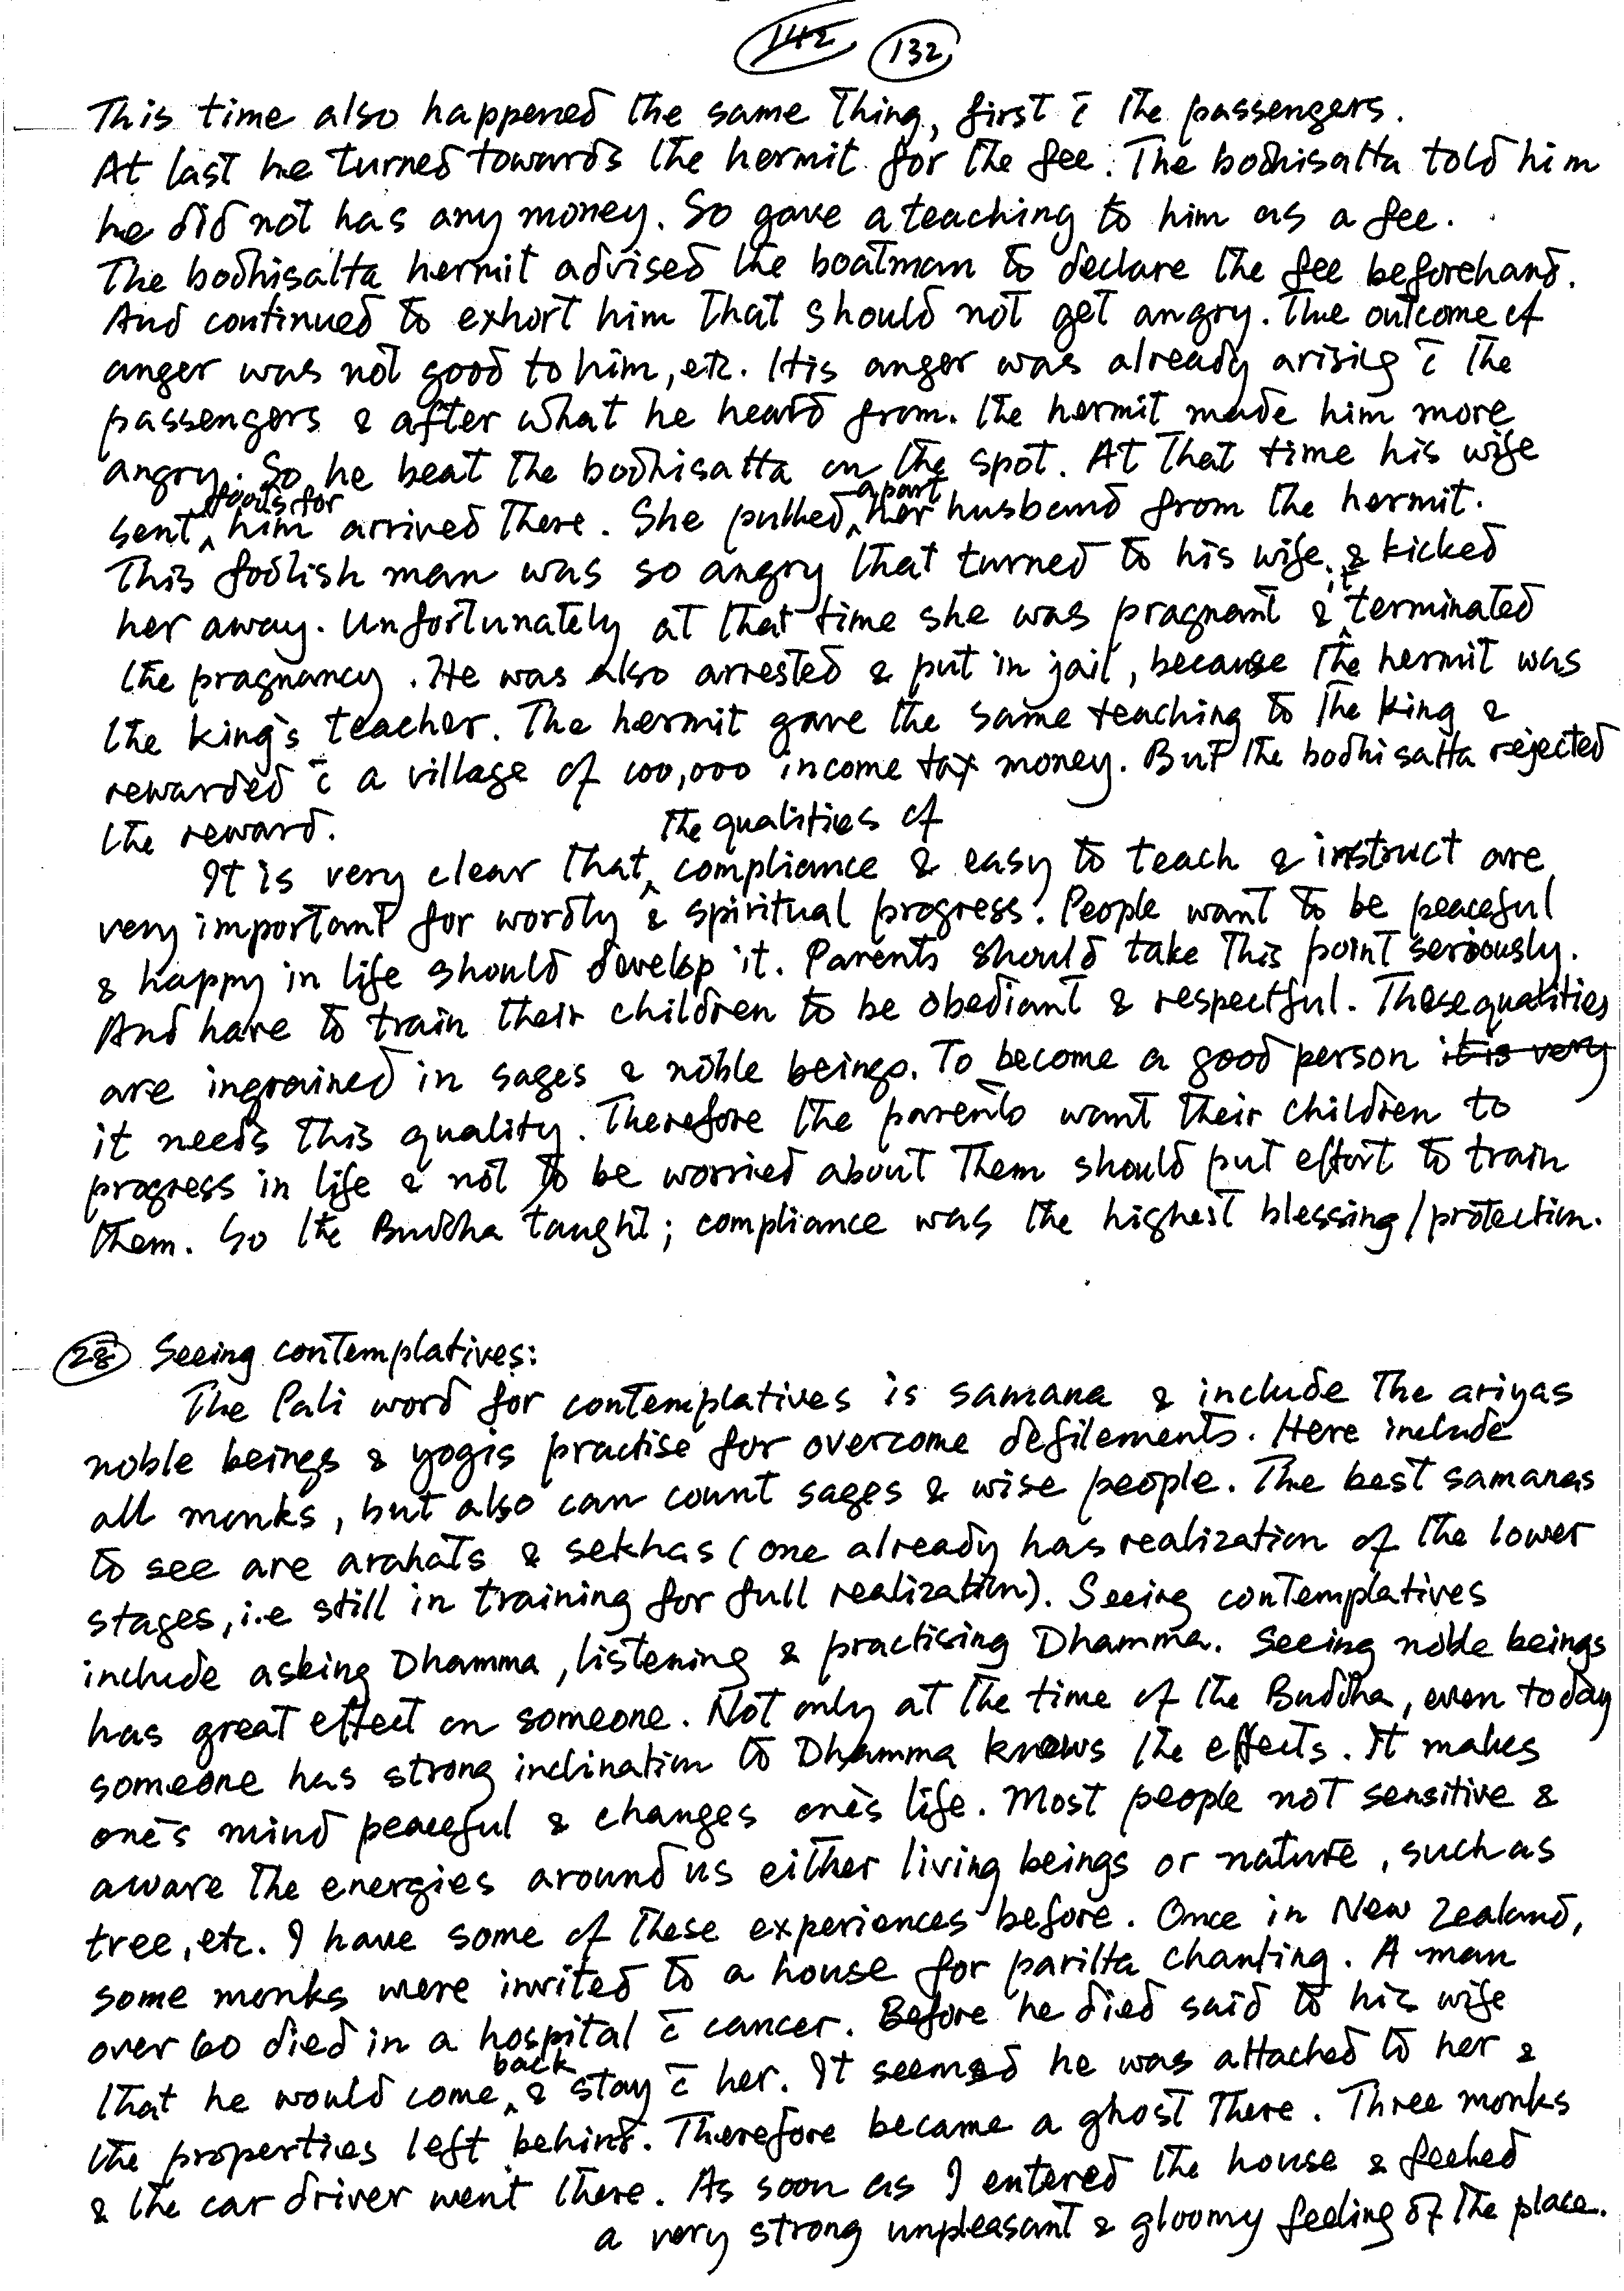 142 132
This time also happened the same thing, first c̄ the passengers.
At last he turned towards the hermit for the fee. The bodhisatta told him
he did not has any money. So gave a teaching to him as a fee.
The bodhisatta hermit advised the boatman to declare the fee beforehand.
And continued to exhort him that should not get angry. The outcome of
anger was not good to him, etc. His anger was already arising c̄ the
passengers & after what he heard from. the hermit made him more
angry. So he beat the bodhisatta on the spot. At that time his wife
sent foods for him arrived there. She pulled apart her husband from the hermit.
This foolish man was so angry that turned to his wife & kicked
her away. Unfortunately at that time she was pragnant & it terminated
the pragnancy. He was also arrested & put in jail, because the hermit was
the king's teacher. The hermit gave the same teaching to the king &
rewarded c̄ a village of 100,000 income tax money. But the bodhisatta rejected
the reward.
It is very clear that the qualities of compliance & easy to teach & instruct are
very important for wordly & spiritual progress. People want to be peaceful
& happy in life should develop it. Parents should take this point seriously.
And have to train their children to be obediant & respectful. These qualities
are ingrained in sages & noble beings. To become a good person it is very
it needs this quality. Therefore the parents want their children to
progress in life & not to be worried about them should put effort to train
them. So the Buddha taught; compliance was the highest blessing/protection.
28 Seeing contemplatives:
The Pali word for contemplatives is samana & include the ariyas
noble beings & yogis practise for overcome defilements. Here include
all monks, but also can count sages & wise people. The best samanas
to see are arahats & sekhas (one already has realization of the lower
stages, i.e still in training for full realization). Seeing contemplatives
include asking Dhamma, listening & practising Dhamma. Seeing noble beings
has great effect on someone. Not only at the time of the Buddha, even today
someone has strong inclination to Dhamma knows the effects. It makes
one's mind peaceful & changes one's life. Most people not sensitive &
aware the energies around us either living beings or nature, such as
tree, etc. I have some of these experiences before. Once in New Zealand,
some monks were invited to a house for paritta chanting. A man
over 60 died in a hospital c̄ cancer. Before he died said to his wife
that he would come back & stay c̄ her. It seemed he was attached to her &
the properties left behind. Therefore became a ghost there. Three monks
& the car driver went there. As soon as I entered the house & feeled
a very strong unpleasant & gloomy feeling of the place.